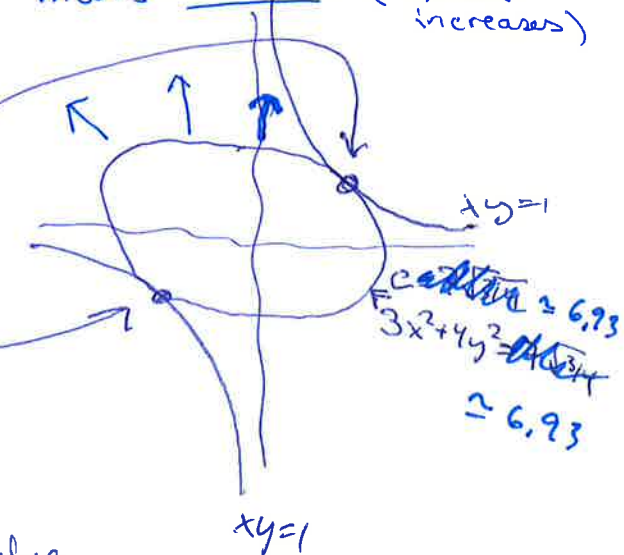 increases)
xy=1
c ≃ 6,93
3x²+4y²=
≃ 6,93
xy=1